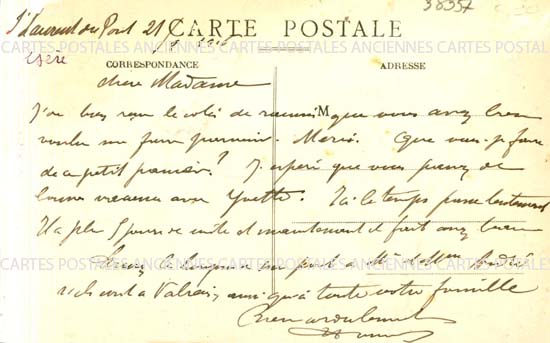 38357
St Laurent du Pont 21
CARTE POSTALE
Isère
CORRESPONDANCE
ADRESSE
CARTES POSTALES ANCIENNES CARTES POSTALES ANCIENNES CARTES POSTALES
chère Madame
J'ai bien reçu le colis de M que vous avez bien
voulu me faire parvenir. Merci. Que vais-je faire
de ce petit panier? J'espère que vous passez de
bonnes vacances avec Yvette. Ici le temps passe lentement
Il a plu 5 jours de suite et maintenant il fait assez beau
CARTES POSTALES ANCIENNES CARTES POSTALES ANCIENNES CARTES POSTALES
de ma part à Mr et Mme André
sont à Valréas, ainsi qu'à toute votre famille
Bien cordialement